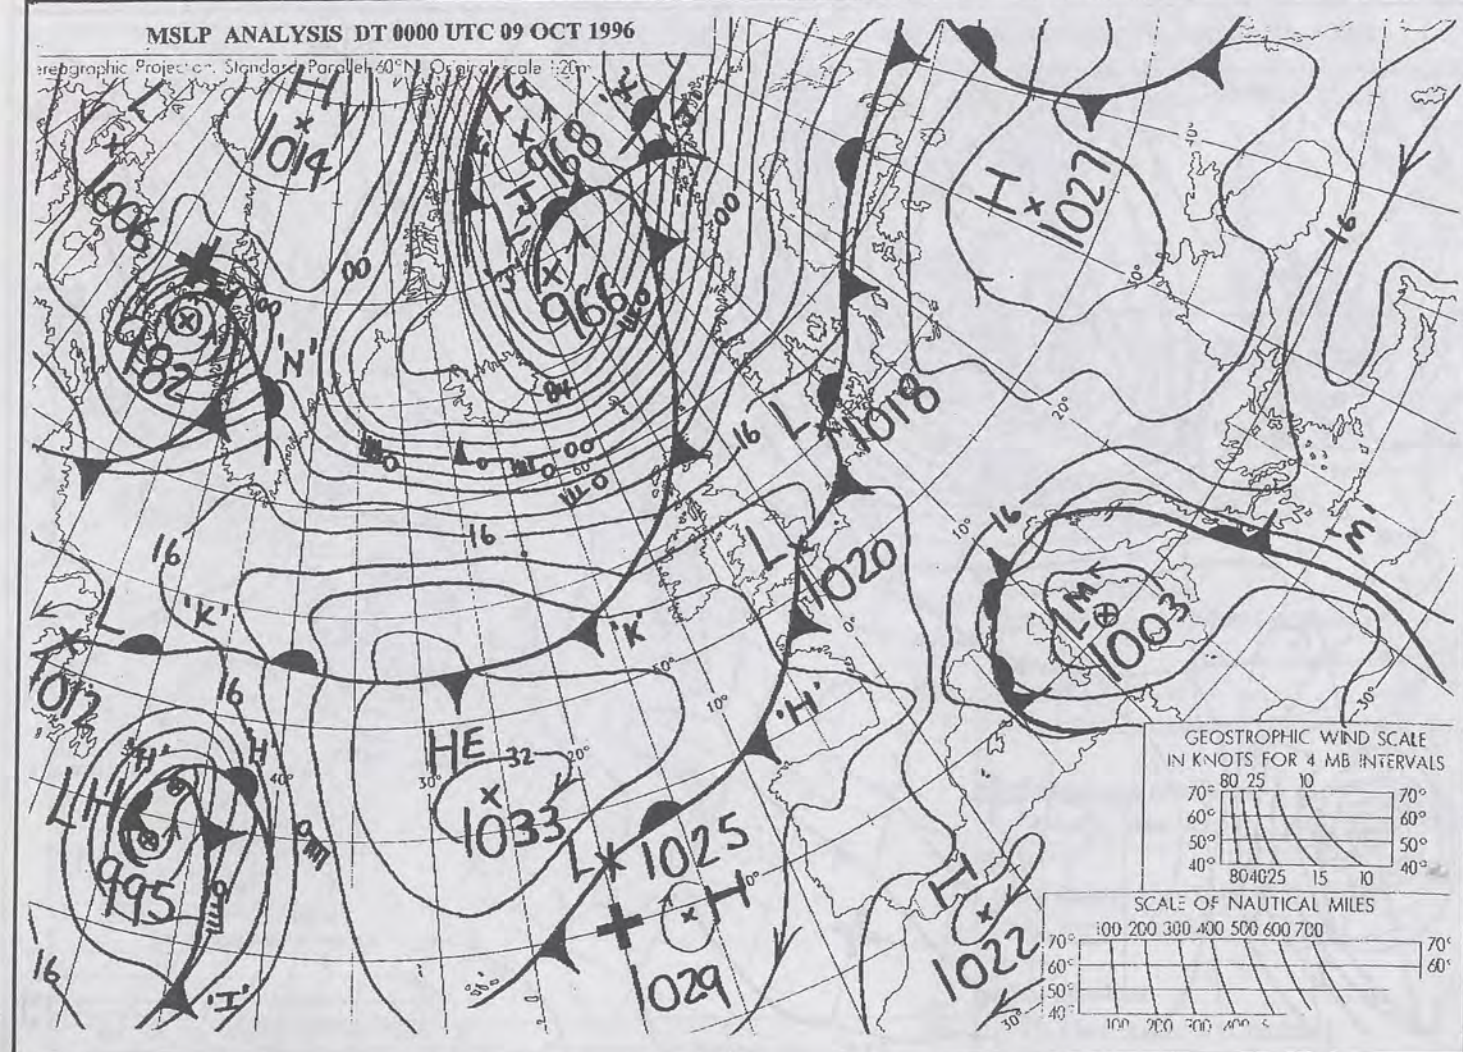 MSLP ANALYSIS DT 0000 UTC 09 OCT 1996
Projection. Standard Parallel 60°N Original scale 1:20m
L
1006
H
1014
LG
968
'K'
LJ
966
'J'
00
00
H
1027
16
982
'N'
00
04
00
60°
16
16
L
1018
20°
10°
10°
16
L
1020
'M'
LM
1003
16
'K'
'K'
50°
10°
0°
30°
L
1012
16
'H'
'H'
40°
LH
995
HE
32
30°
20°
1033
'H'
L
1025
H
1029
H
1022
30°
16
'I'
GEOSTROPHIC WIND SCALE
IN KNOTS FOR 4 MB INTERVALS
80 25 10
70° 70°
60° 60°
50° 50°
40° 40°
80 40 25 15 10
SCALE OF NAUTICAL MILES
100 200 300 400 500 600 700
70° 70°
60° 60°
50°
40°
100 200 300 400 5